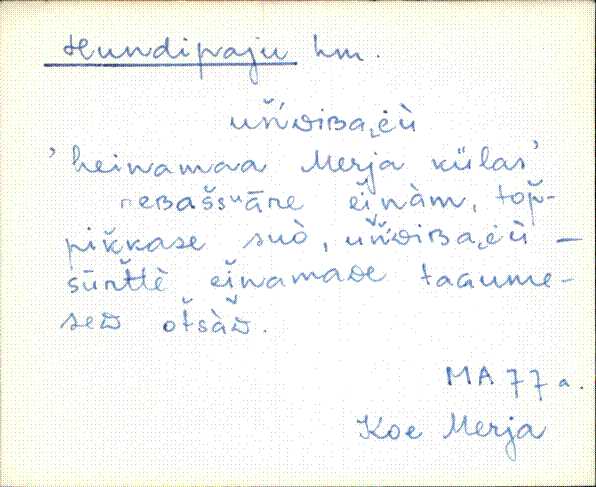 Hundipaju hm.
uň́ᴅiʙa͔i̮ù
'heinamaa Merja külas'
ʀeʙaššᵘāʀe eĭnàm, top̆-
pik̆kase suò, uň́ᴅiʙa͔i̮ù —
sūʀ̆t̆tè eĭnamaᴅe taɢume-
seᴅ ot̆sàᴅ̆.
MA 77 a.
Koe Merja